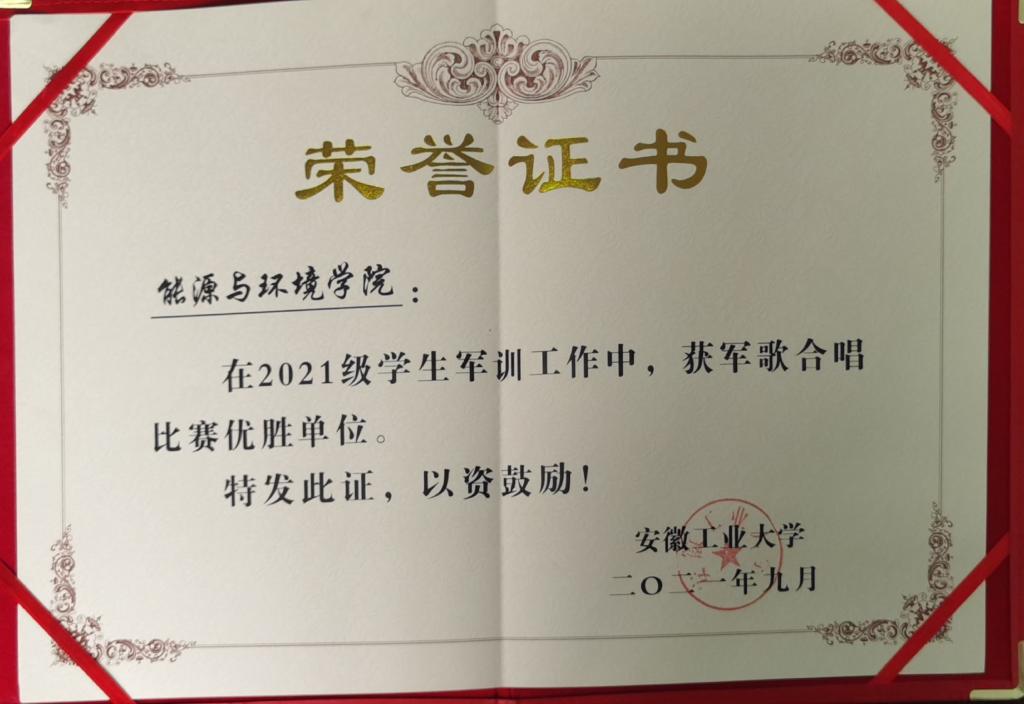 荣誉证书
能源与环境学院：
在2021级学生军训工作中，获军歌合唱
比赛优胜单位。
特发此证，以资鼓励！
安徽工业大学
二〇二一年九月